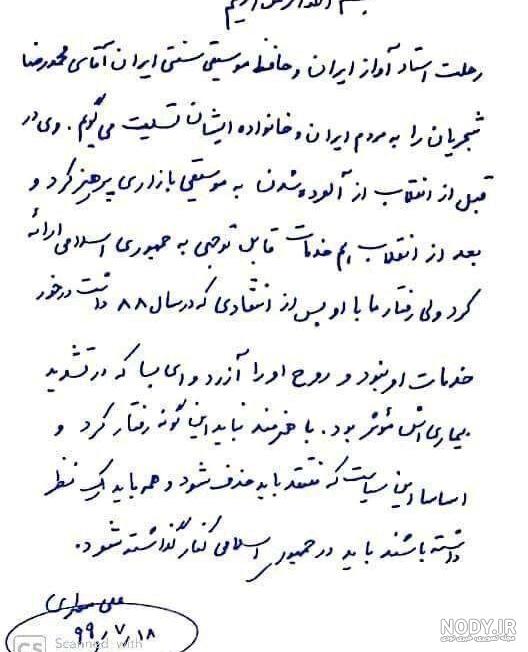 بسم الله الرحمن الرحیم
رحلت استاد آواز ایران و حافظ موسیقی سنتی ایران آقای محمدرضا
شجریان را به مردم ایران و خانواده ایشان تسلیت می گویم. وی در
قبل از انقلاب از آلوده شدن به موسیقی بازاری پرهیز کرد و
بعد از انقلاب هم خدمات قابل توجهی به جمهوری اسلامی ارائه
کرد ولی رفتار ما با او پس از انتقادی که در سال ۸۸ داشت در خور
خدمات او نبود و روح او را آزرد و ای بسا که در تشدید
بیماری اش مؤثر بود. با هنرمند نباید این گونه رفتار کرد و
اساسا این سیاست که منتقد باید حذف شود و همه باید یک نظر
داشته باشند باید در جمهوری اسلامی کنار گذاشته شود.
علی مطهری
۹۹٫۷٫۱۸
CS Scanned with
NODY.IR